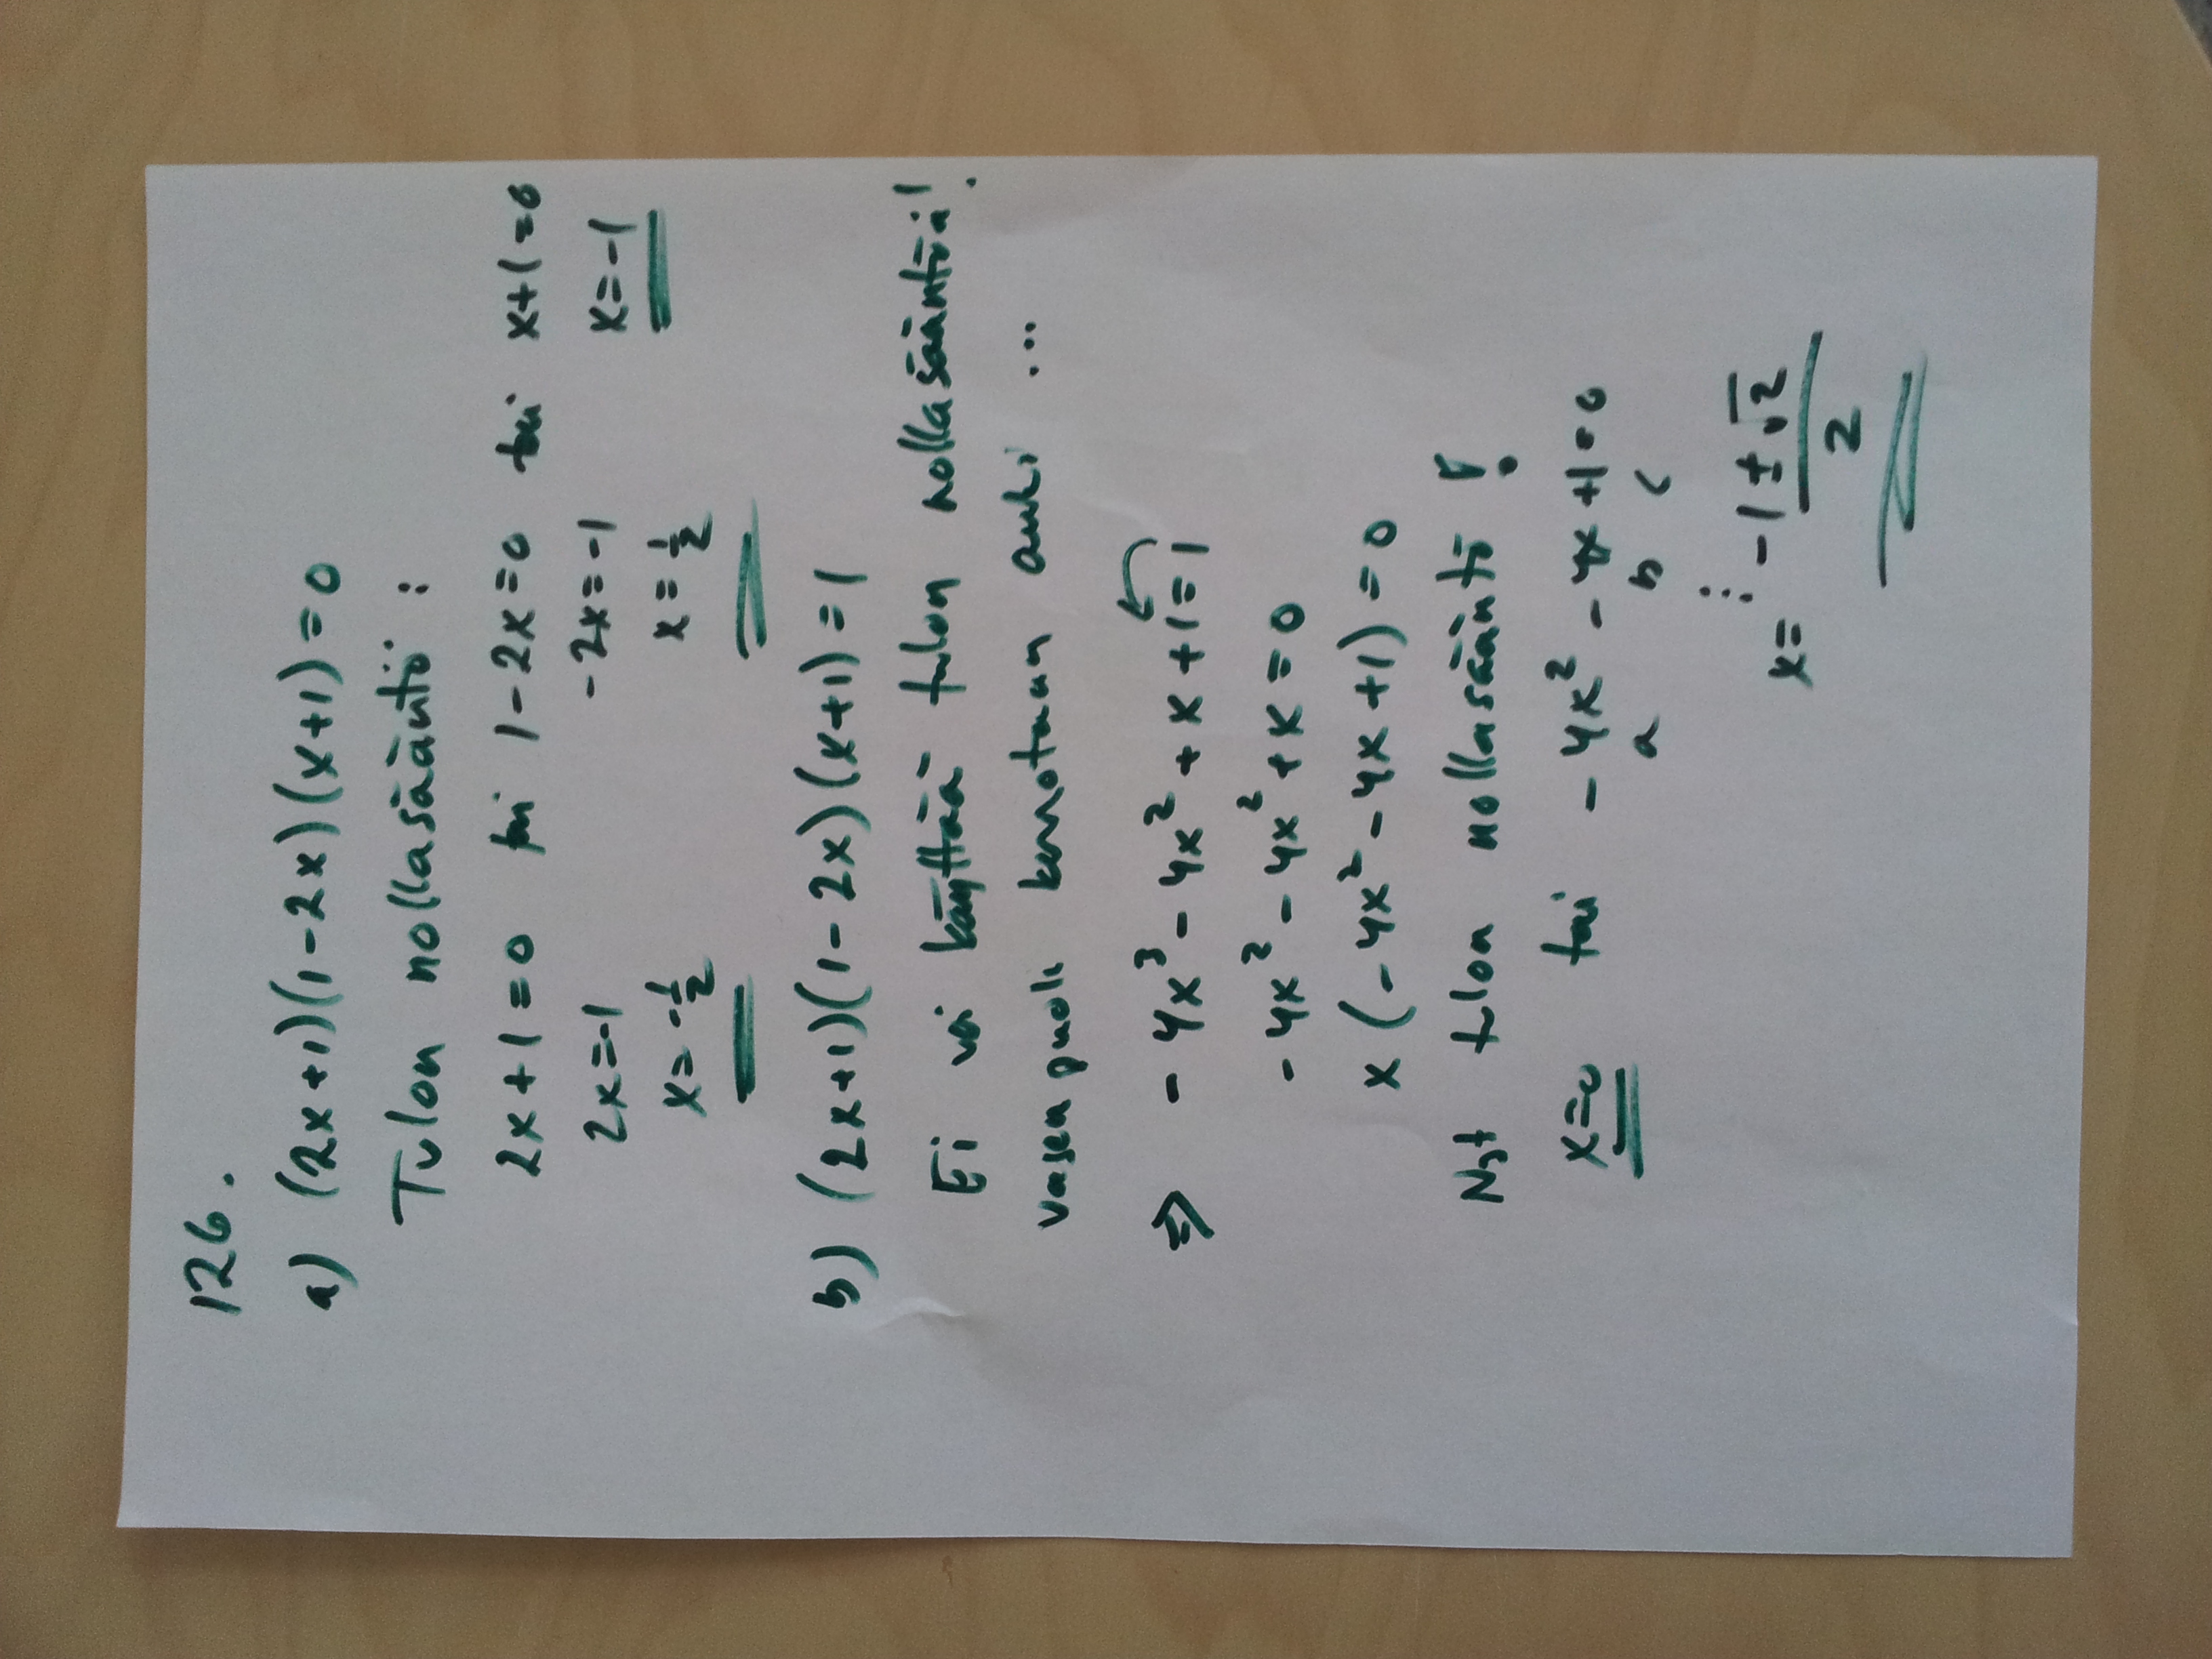 126.
a) (2x+1)(1-2x)(x+1)=0
Tulon nollasääntö:
2x+1=0 tai 1-2x=0 tai x+1=0
2x=-1 -2x=-1 x=-1
x=-1/2 x=1/2
b) (2x+1)(1-2x)(x+1)=1
Ei voi käyttää tulon nollasääntöä!
vasen puoli kerrotaan auki ...
⇒ -4x³-4x²+x+1=1
-4x²-4x²+x=0
x(-4x²-4x+1)=0
Nyt tulon nollasääntö!
x=0 tai -4x²-4x+1=0
a b c
⋮
x= -1±√2
2